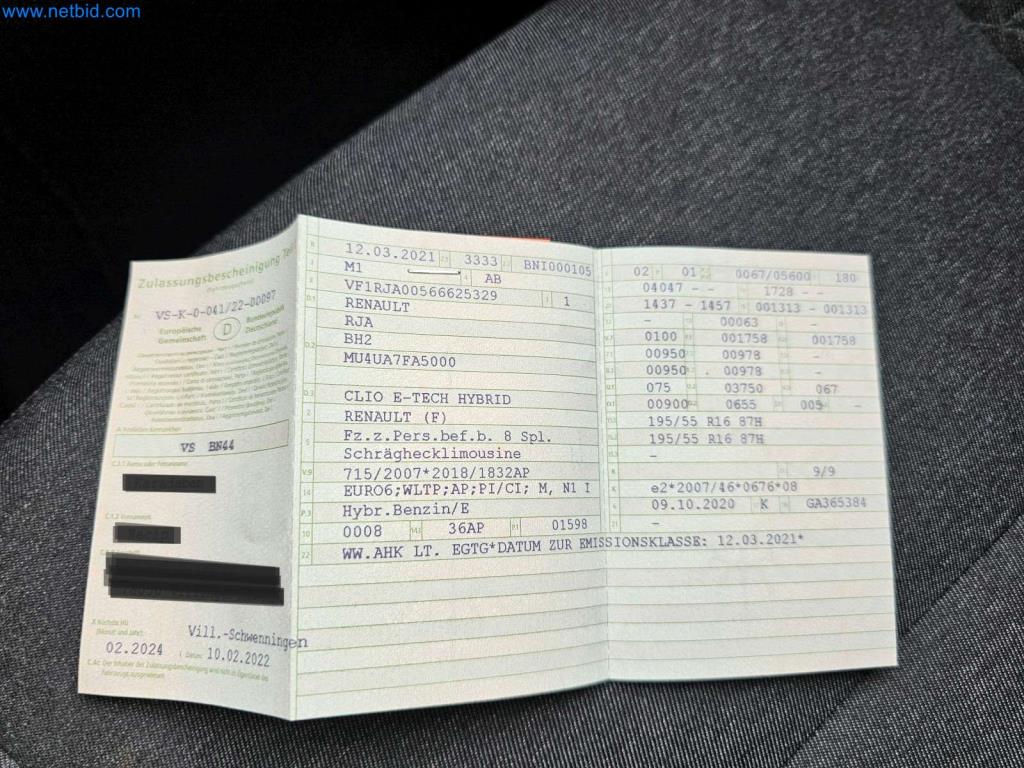 www.netbid.com
Zulassungsbescheinigung Teil
VS-K-0-041/22-00097
Europäische Gemeinschaft
D
Bundesrepublik Deutschland
VS BN44
X Nächste HU
(Monat und Jahr)
02.2024
Vill.-Schwenningen
Datum 10.02.2022
12.03.2021 3333 BNI000105
M1 AB
VF1RJA00566625329 1
RENAULT
RJA
BH2
MU4UA7FA5000
CLIO E-TECH HYBRID
RENAULT (F)
Fz.z.Pers.bef.b. 8 Spl.
Schräghecklimousine
715/2007*2018/1832AP
EURO6;WLTP;AP;PI/CI; M, N1 I
Hybr.Benzin/E
0008 36AP 01598
WW.AHK LT. EGTG*DATUM ZUR EMISSIONSKLASSE: 12.03.2021*
02 01 0067/05600 180
04047 - 1728 -
1437 - 1457 001313 - 001313
- 00063 -
0100 001758 001758
00950 00978 -
00950 00978 -
075 03750 067
00900 0655 005 -
195/55 R16 87H
195/55 R16 87H
-
9/9
e2*2007/46*0676*08
09.10.2020 K GA365384
-